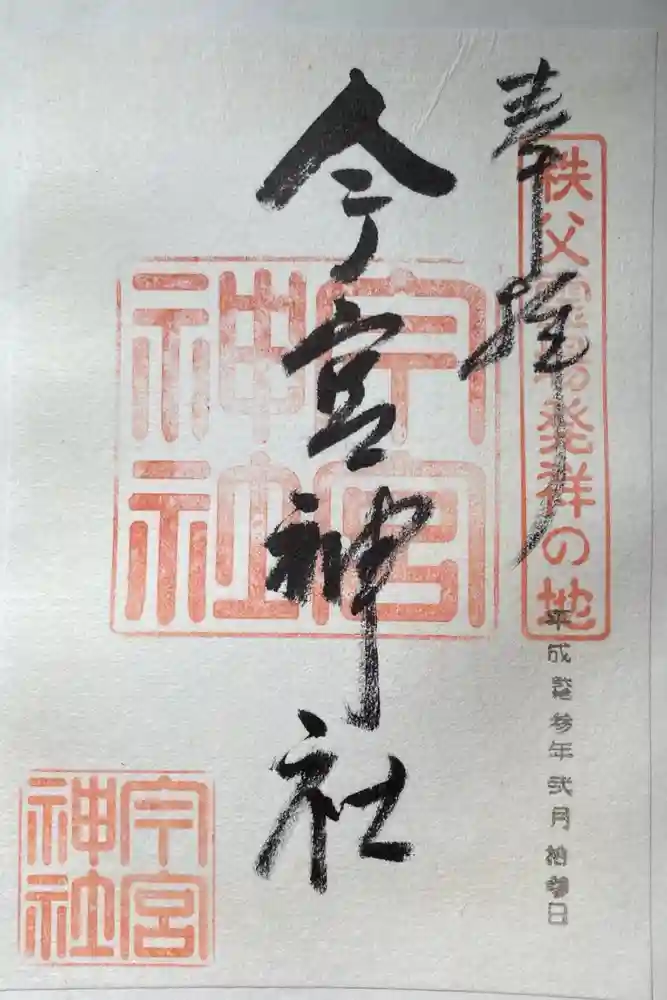 奉拝
秩父霊場発祥の地
平成 参年弐月 日
今宮神社
今宮神社
今宮神社